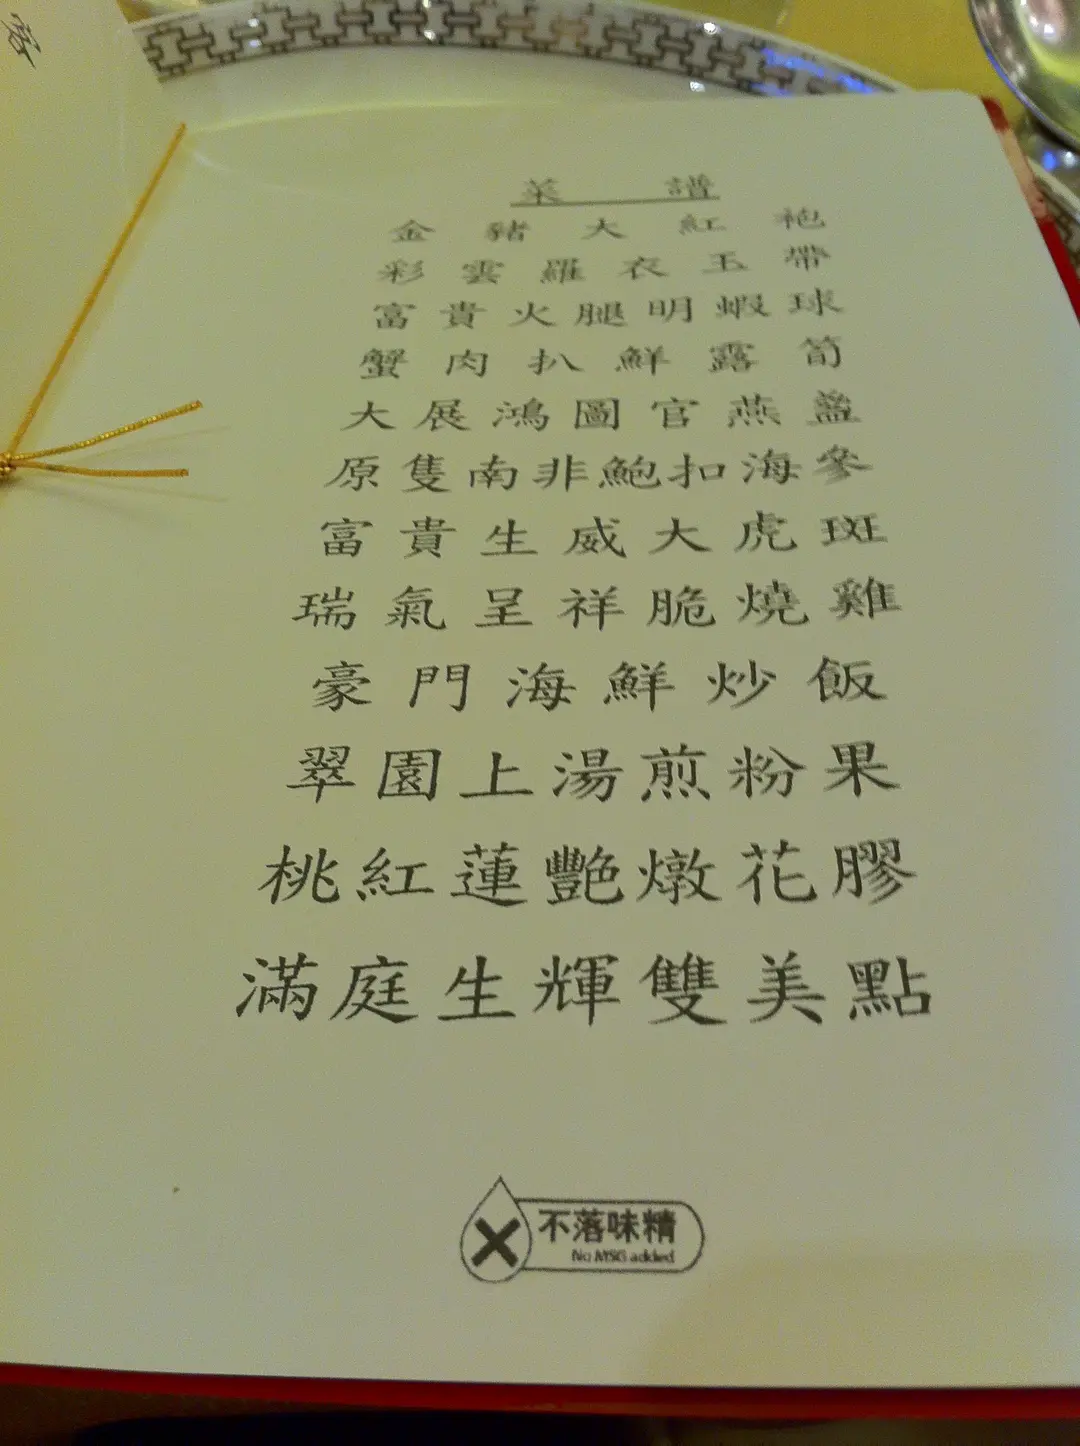 菜 譜
金豬大紅袍
彩雲羅衣玉帶
富貴火腿明蝦球
蟹肉扒鮮露筍
大展鴻圖官燕盞
原隻南非鮑扣海參
富貴生威大虎斑
瑞氣呈祥脆燒雞
豪門海鮮炒飯
翠園上湯煎粉果
桃紅蓮艷燉花膠
滿庭生輝雙美點
不落味精
No MSG added